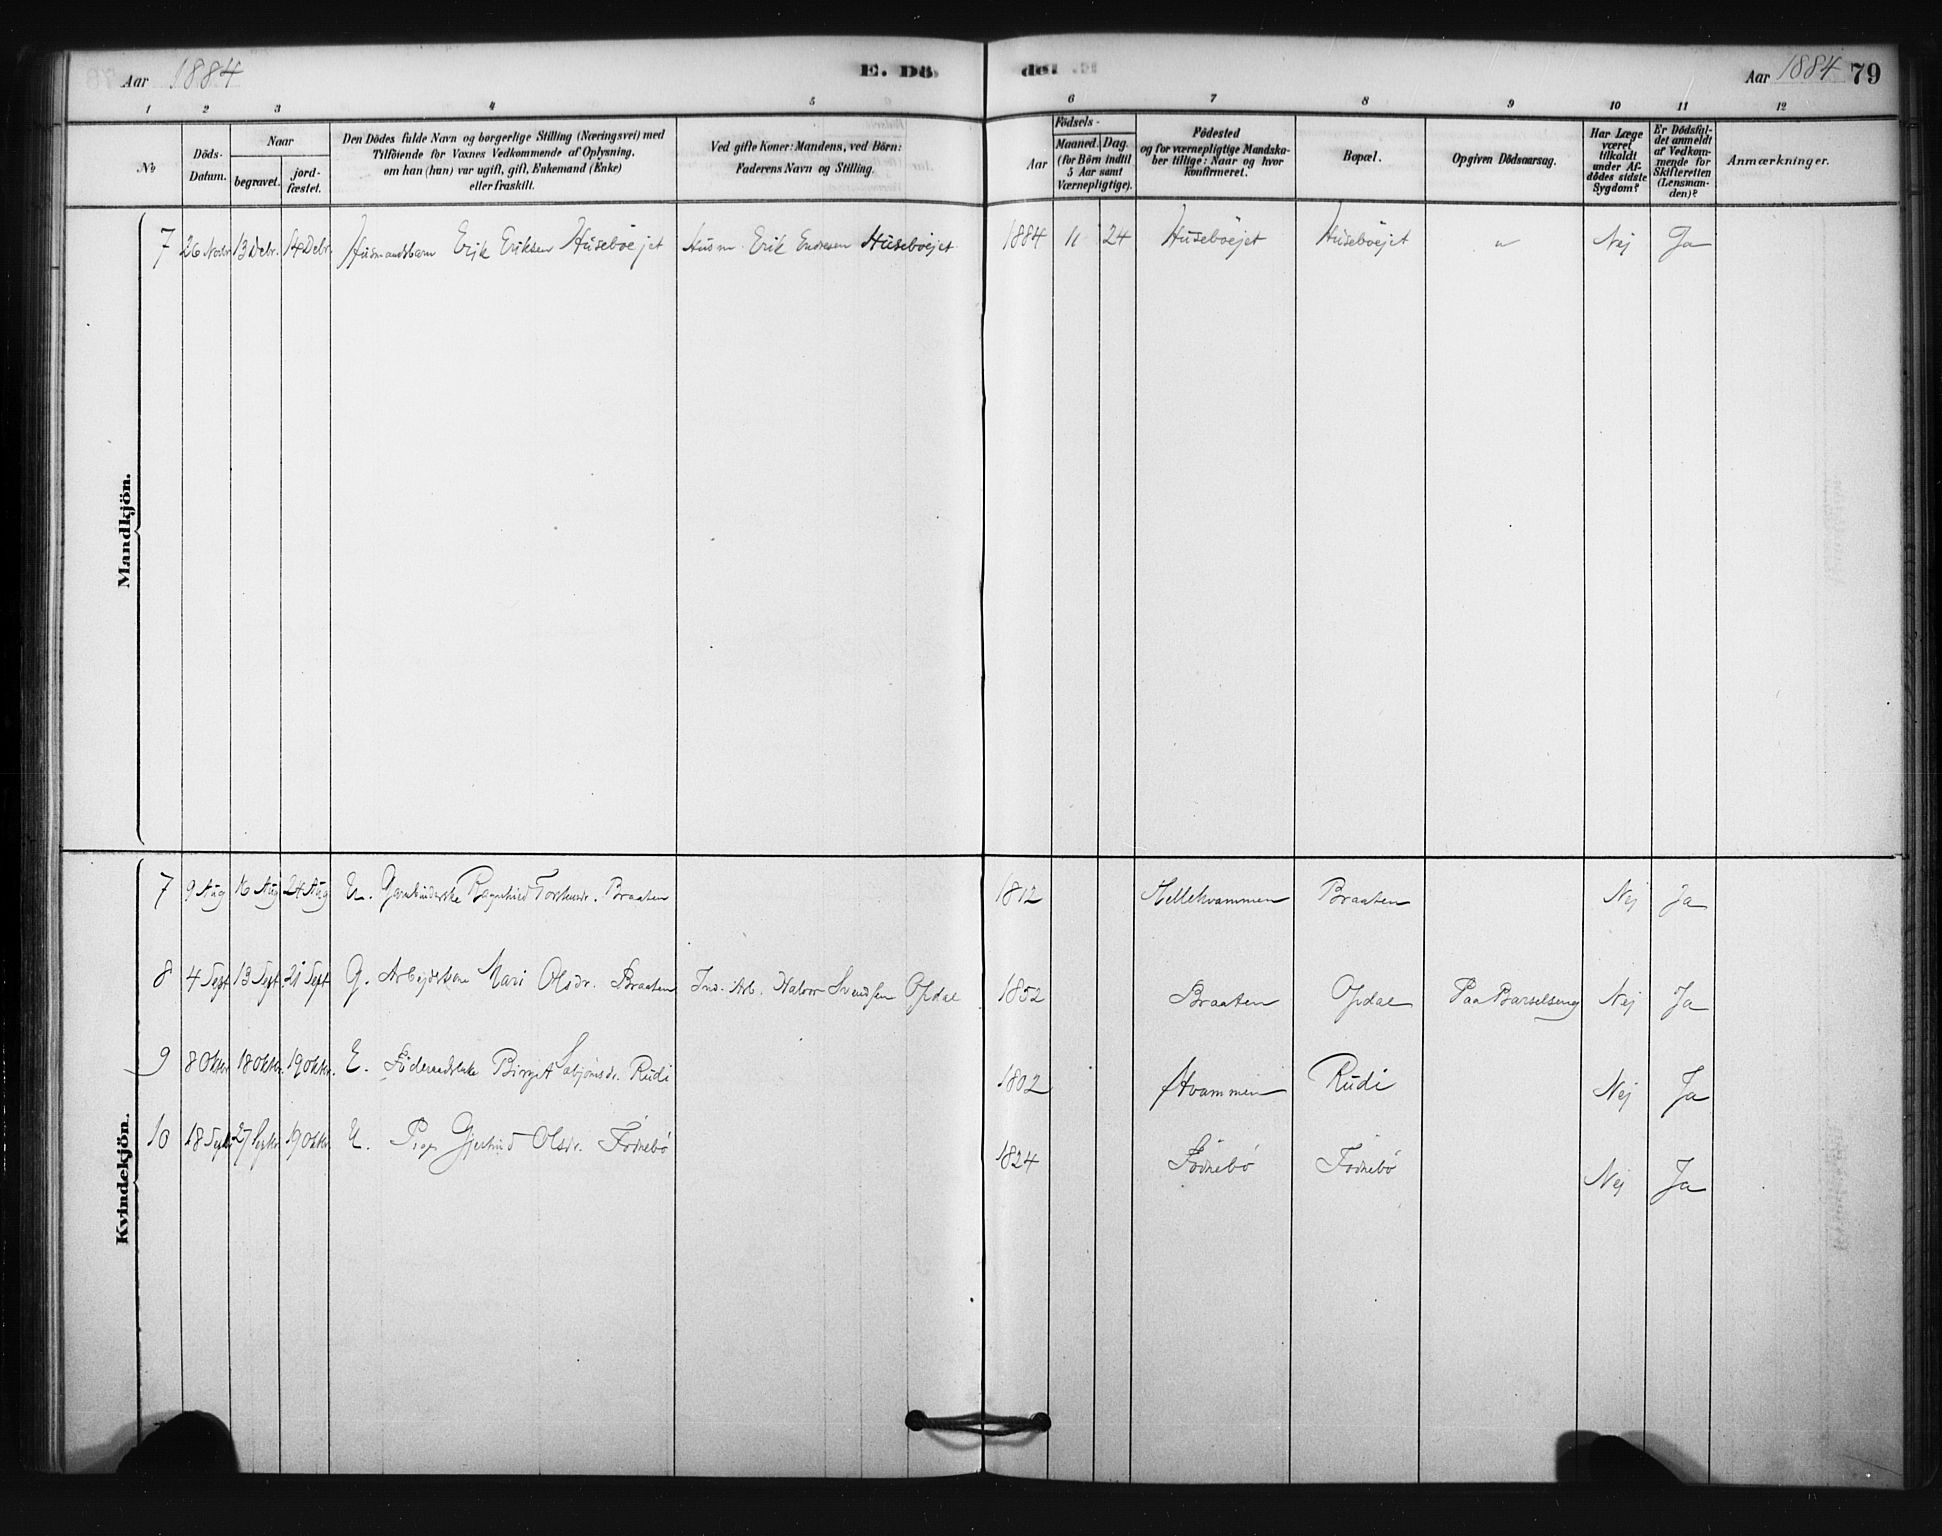 Aar 1884 E. Dö del. Aar 1884 79
1 2 3 4 5 6 7 8 9 10 11 12
No
Döds-Datum.
Naar
begravet. jord-fæstet.
Den Dödes fulde Navn og borgerlige Stilling (Næringsvei) med
Tilföiende for Voxnes Vedkommende af Oplysning,
om han (hun) var ugift, gift, Enkemand (Enke)
eller fraskilt.
Ved gifte Koner: Mandens, ved Börn:
Faderens Navn og Stilling.
Födsels-
Aar Maaned. Dag.
(for Börn indtil
5 Aar samt
Værnepligtige).
Födested
og for værnepligtige Mandska-
ber tillige: Naar og hvor
konfirmeret.
Bopæl.
Opgiven Dödsaarsag.
Har Læge
været
tilkaldt
under Af-
dödes sidste
Sygdom?
Er Dödsfal-
det anmeldt
af Vedkom-
mende for
Skifteretten
(Lensman-
den)?
Anmærkninger.
Mandkjön.
7 26 Novbr 13 Debr. 14 Debr. Husmandsbarn Erik Eriksen Huseböejet Husm. Erik Endresen Huseböejet 1884 11 24 Huseböejet Huseböejet " Nej Ja
Kvindekjön.
7 9 Aug 16 Aug 24 Aug Ragnhild Braaten 1812 Hellekvammen Braaten Nej Ja
8 4 Sept 13 Sept 21 Sept G. Arbejdskone Mari Olsdr. Braaten Ind. Arb. Halvor Svendsen Opdal 1852 Braaten Opdal Paa Barselseng Nej Ja
9 8 Oktbr 18 Oktbr. 19 Oktbr. E. Birgit Rudi 1802 Hvammen Rudi Nej Ja
10 18 Septbr 27 Septbr 19 Oktbr. U. Pige Gjertrud Olsdr. Födnebö 1824 Födnebö Födnebö Nej Ja